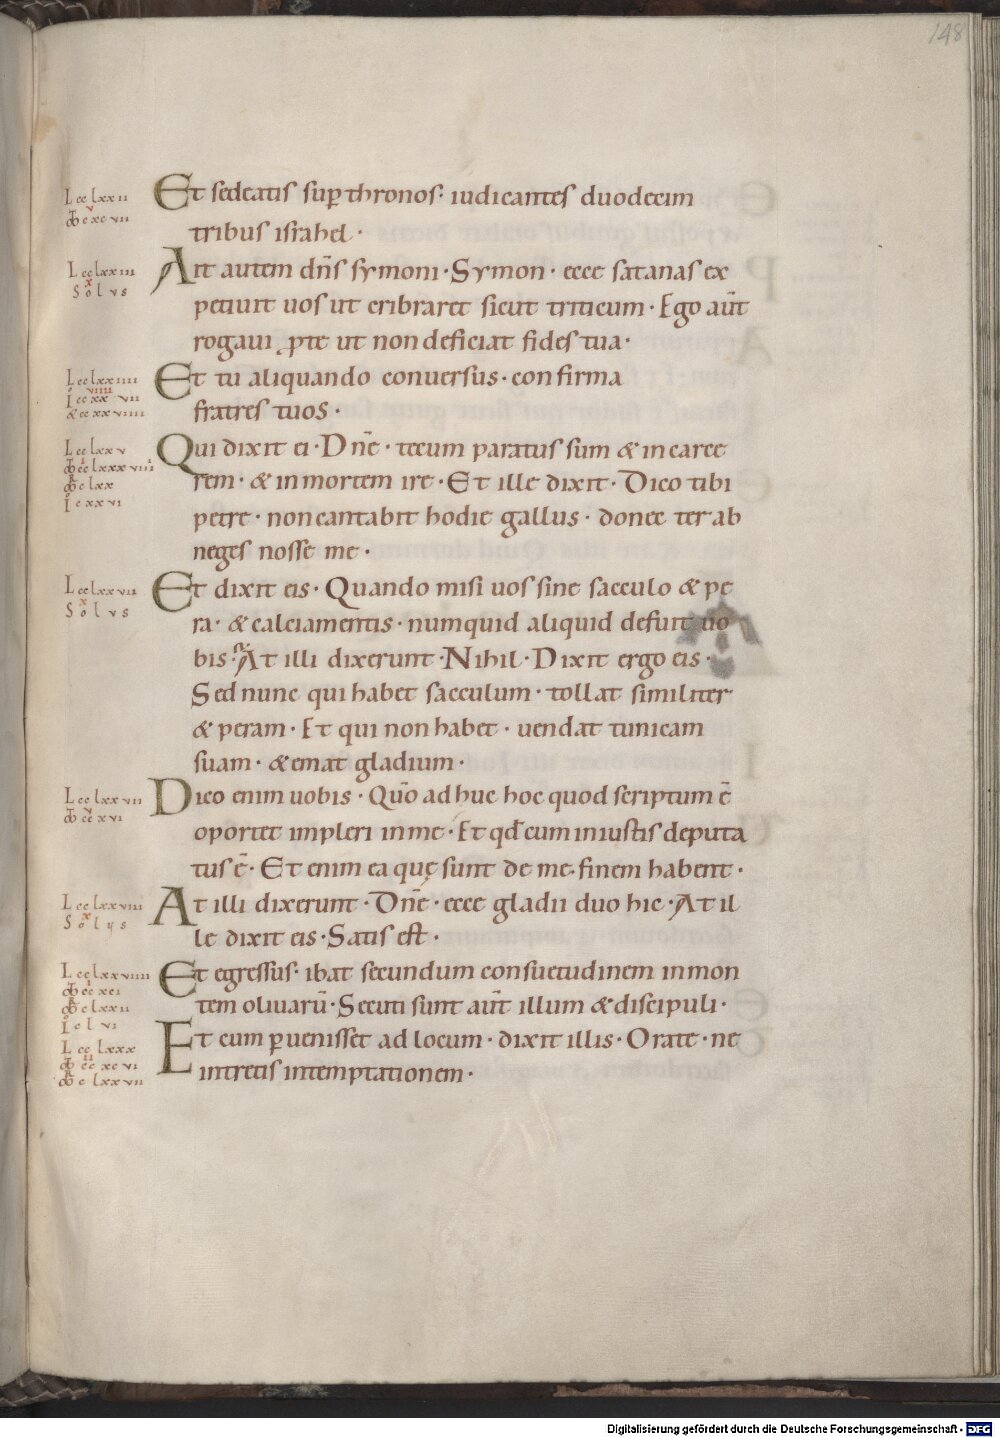 148
Et sedeatis sup̄ thronos· iudicantes duodecim
tribus israhel·
Ait autem dn̄s symoni· Symon· ecce satanas ex
petiuit uos ut cribraret sicut triticum· Ego aūt
rogaui pte ut non deficiat fides tua·
Et tu aliquando conuersus· confirma
fratres tuos·
Qui dixit ei· Dn̄e· tecum paratus sum & in carce
rem· & in mortem ire· Et ille dixit· Dico tibi
petre· non cantabit hodie gallus· donec ter ab
neges nosse me·
Et dixit eis· Quando misi uos sine sacculo & pe
ra· & calciamentis· numquid aliquid defuit uo
bis· At illi dixerunt· Nihil· Dixit ergo eis·
Sed nunc qui habet sacculum· tollat similiter
& peram· Et qui non habet· uendat tunicam
suam· & emat gladium·
Dico enim uobis· Qūo adhuc hoc quod scriptum ē
oportet impleri in me· Et qđ cum iniustis deputa
tus ē· Et enim ea quę sunt de me· finem habent·
At illi dixerunt· Dn̄e· ecce gladii duo hic· At il
le dixit eis· Satis est·
Et egressus· ibat secundum consuetudinem in mon
tem oliuarū· Secuti sunt aūt illum & discipuli·
Et cum puenisset ad locum· dixit illis· Orate· ne
intretis in temptationem·
L cclxxii
L cclxxiii
Solus
L cclxxiiii
L cclxxv
L cclxxvi
Solus
L cclxxvii
L cclxxviii
L cclxxviiii
L cclxxx
Digitalisierung gefördert durch die Deutsche Forschungsgemeinschaft - DFG